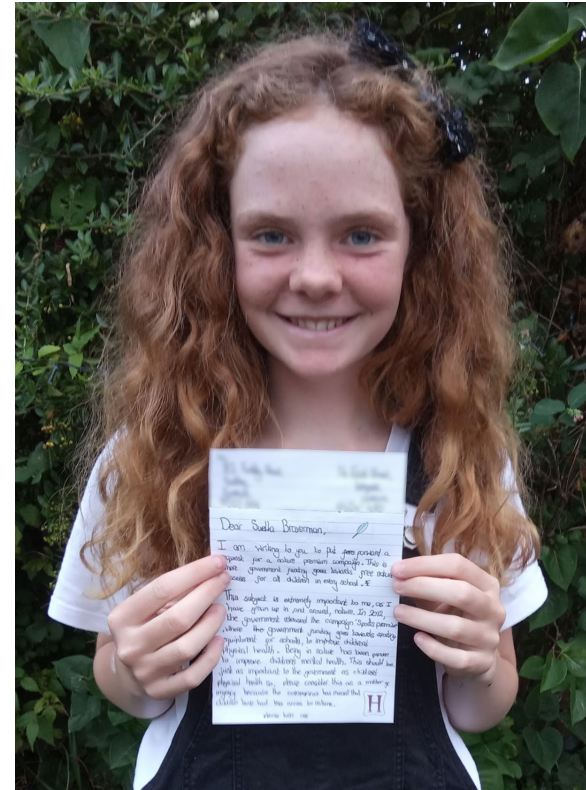 Dear Suella Braverman,
I am writing to you to put forward a
request for a nature premium campaign. This is
where government funding goes towards free nature
access for all children in every school.
This subject is extremely important to me, as I
have grown up in and around, nature. In 2012,
the government released the campaign 'Sports premium'
where the government funding goes towards sports
equipment for schools, to improve childrens'
physical health. Being in nature has been proven
to improve childrens mental health. This should be
just as important to the government as childrens'
physical health so, please consider this as a matter of
urgency because the coronavirus has meant that
children have had less access to nature.
please turn over
H